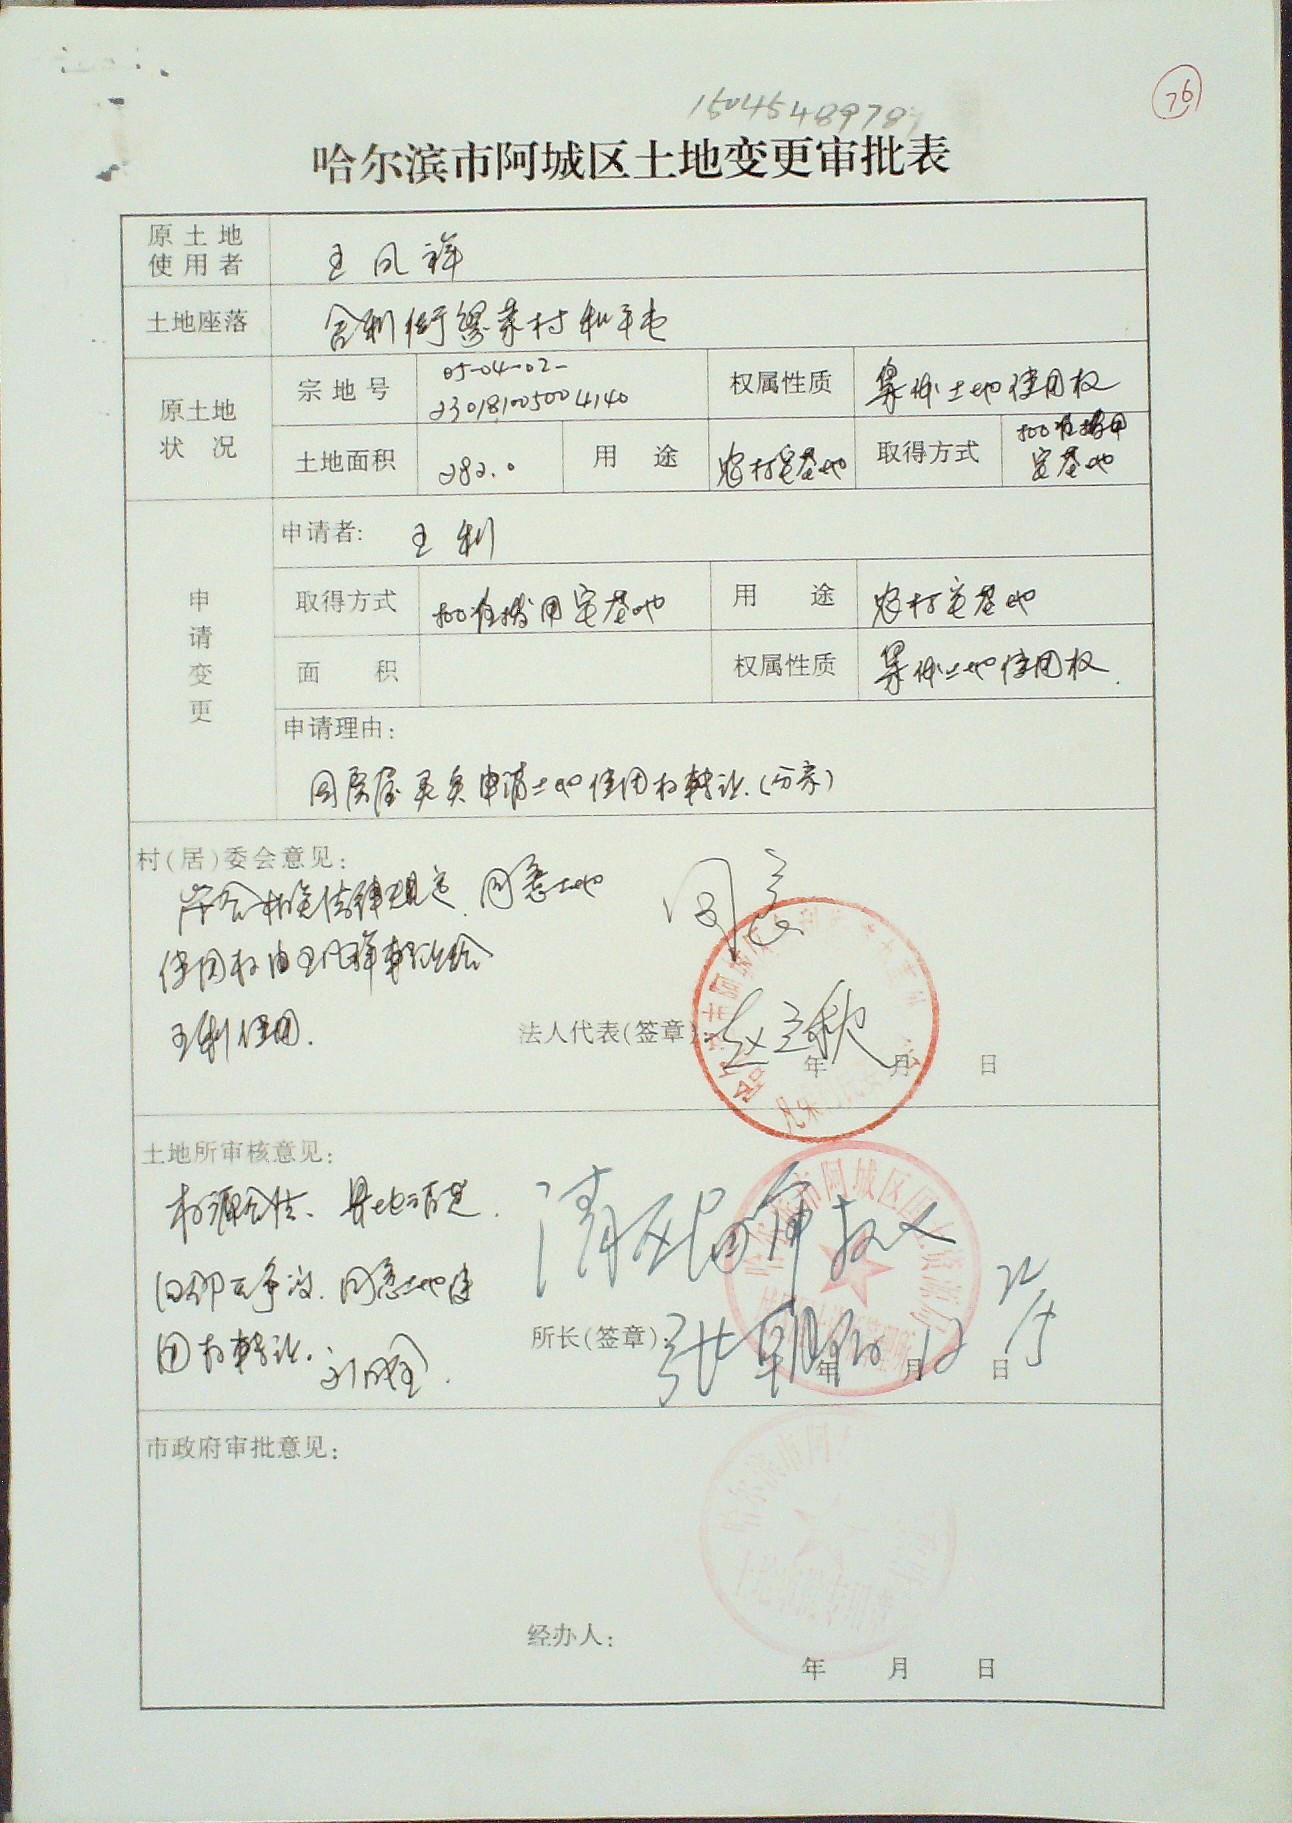 76
1504548978
哈尔滨市阿城区土地变更审批表
原土地使用者 王凤祥
土地座落 舍利街 村和平屯
原土地状况
宗地号 05-04-02-
230181005004140
权属性质 集体土地使用权
土地面积 282.0 用途 农村宅基地 取得方式 批准拨用宅基地
申请变更
申请者: 王利
取得方式 批准拨用宅基地 用途 农村宅基地
面积 权属性质 集体土地使用权
申请理由:
因房屋买卖申请土地使用权转让.(分家)
村(居)委会意见:
符合相关法律规定、同意土地
使用权由王凤祥转让给
王利使用.
同意
法人代表(签章): 赵立秋
年 月 日
土地所审核意见:
权源合法、界地清楚.
四邻无争议.同意土地使
用权转让.
请区局审批
所长(签章):
年12月 日
市政府审批意见:
经办人:
年 月 日